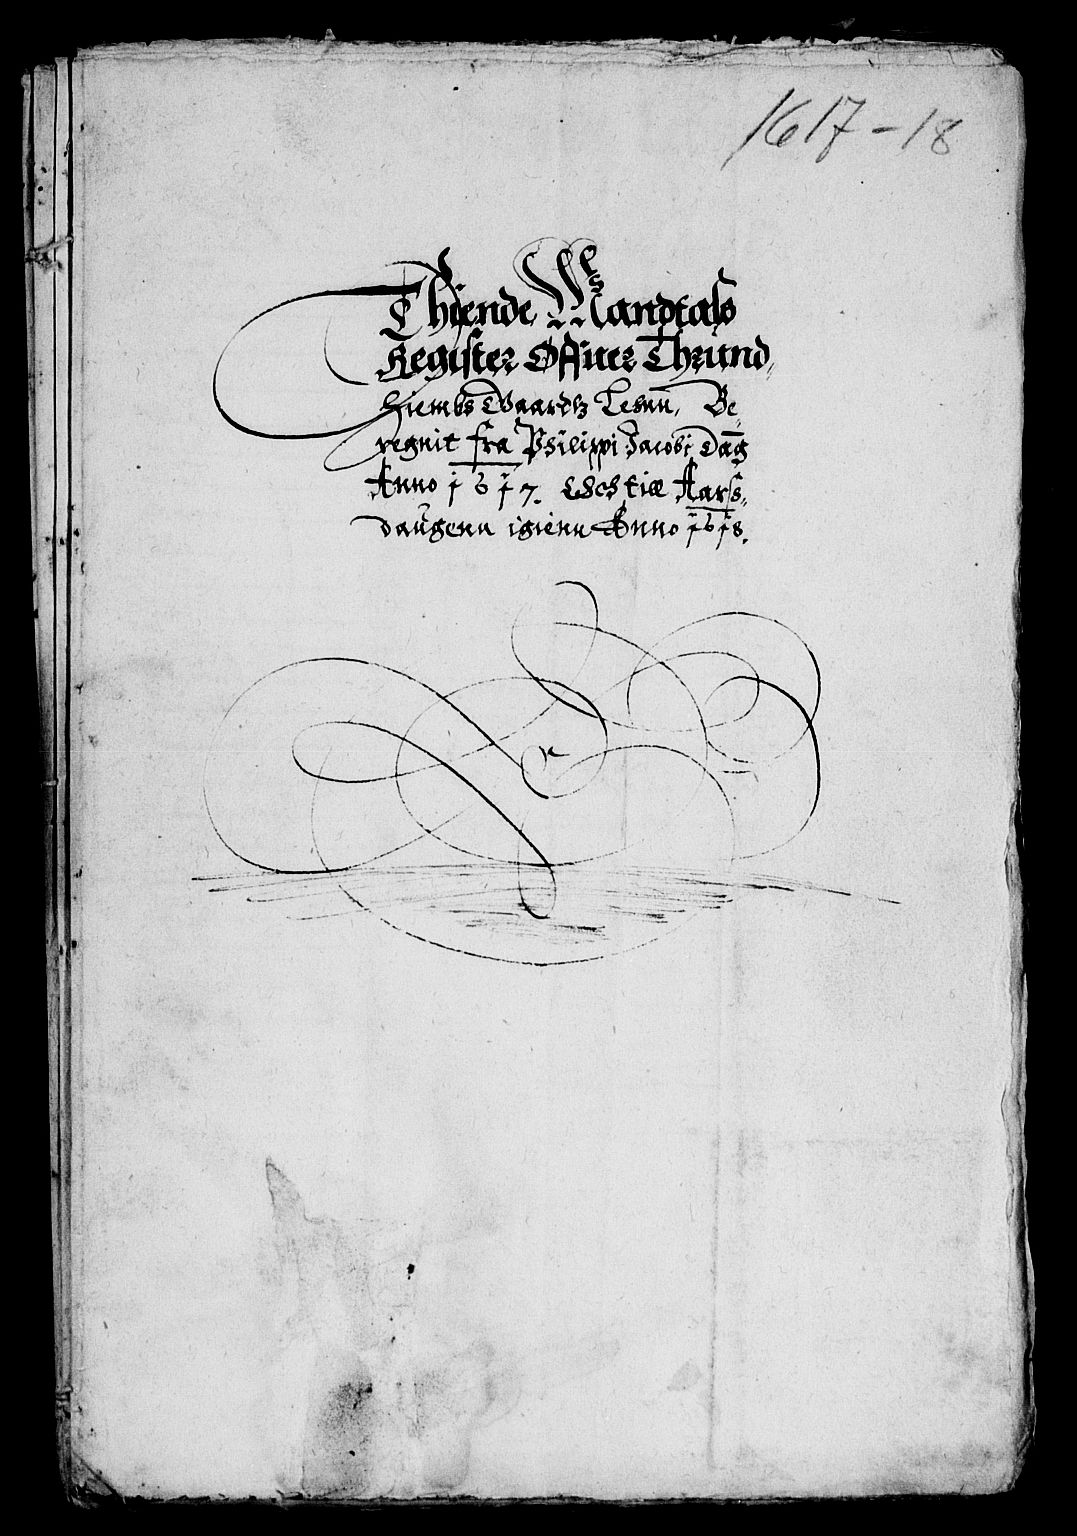 1617-18
Thiende Mandtals
Register Offuer Thrund,
hiembs Gaardtz Lehnn, Be,
regnit fra Philippi Jacobi Dag
Anno 1617. Och till Aars,
daugenn igienn Anno 1618.